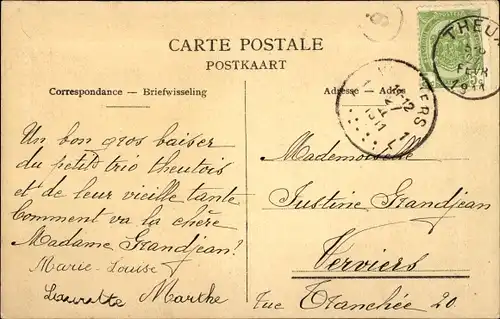 CARTE POSTALE
POSTKAART
Correspondance — Briefwisseling
Adresse - Adres
THEUX
FEVR
1911
VERVIERS
11-12
1911
Un bon gros baiser
du petits trio theutois
et de leur vieille tante
Comment va la chère
Madame Grandjean?
Marie-Louise
Marthe
Mademoiselle
Justine Grandjean
Verviers
rue Tranchée 20.